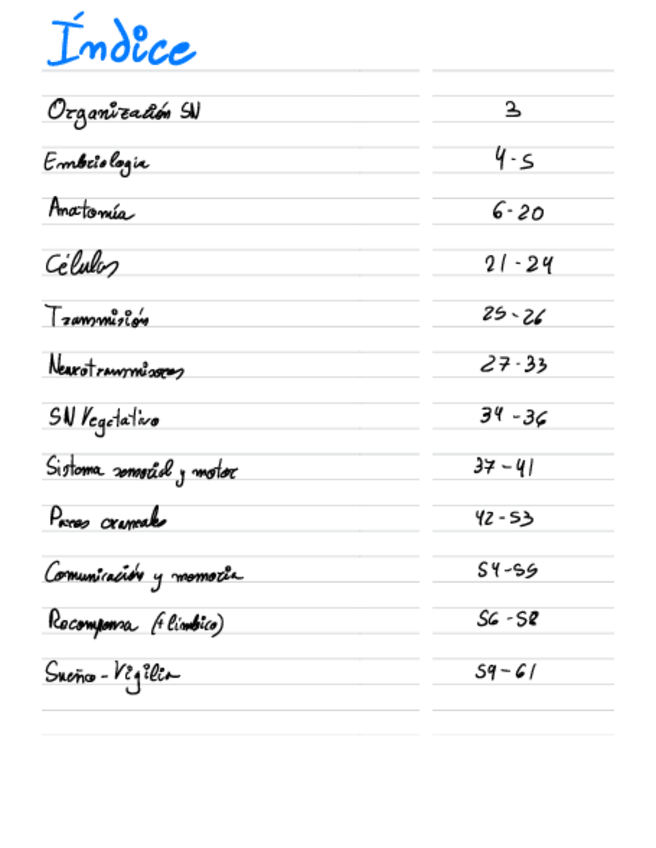 Índice
Organización SN 3
Embriología 4-5
Anatomía 6-20
Células 21-24
Transmisión 25-26
Neurotransmisores 27-33
SN Vegetativo 34-36
Sistema sensorial y motor 37-41
Pares craneales 42-53
Comunicación y memoria 54-55
Recompensa (+ límbico) 56-58
Sueño-Vigilia 59-61